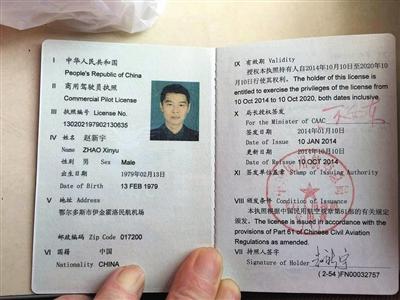 I 中华人民共和国
People's Republic of China
II 商用驾驶员执照
Commercial Pilot License
III 执照编号 License No.
130202197902130635
IV 姓名 赵新宇
Name ZHAO Xinyu
性别 男 Male
Sex
出生日期 1979年02月13日
Date of Birth 13 FEB 1979
V 地址 Address
鄂尔多斯市伊金霍洛民航机场
邮政编码 Zip Code 017200
VI 国籍 中国
Nationality CHINA
IX 有效期 Validity
授权本执照持有人自2014年10月10日至2020年10
月10日行使其权利。The holder of this license is
entitled to exercise the privileges of the license from
10 Oct 2014 to 10 Oct 2020, both dates inclusive
X 局长授权签发
For the Minister of CAAC
签发日期 2014年01月10日
Date of Issue 10 JAN 2014
更新日期 2014年10月10日
Date of Reissue 10 OCT 2014
XI 签发单位盖章 Stamp of Issuing Authority
VIII 颁发条件 Condition of Issuance
本执照根据中国民用航空规章第61部的有关规定
颁发。The license is issued in accordance with the
provisions of Part 61 of Chinese Civil Aviation
Regulations as amended.
VII 持照人签字
Signature of Holder
(2-54) FN00032757